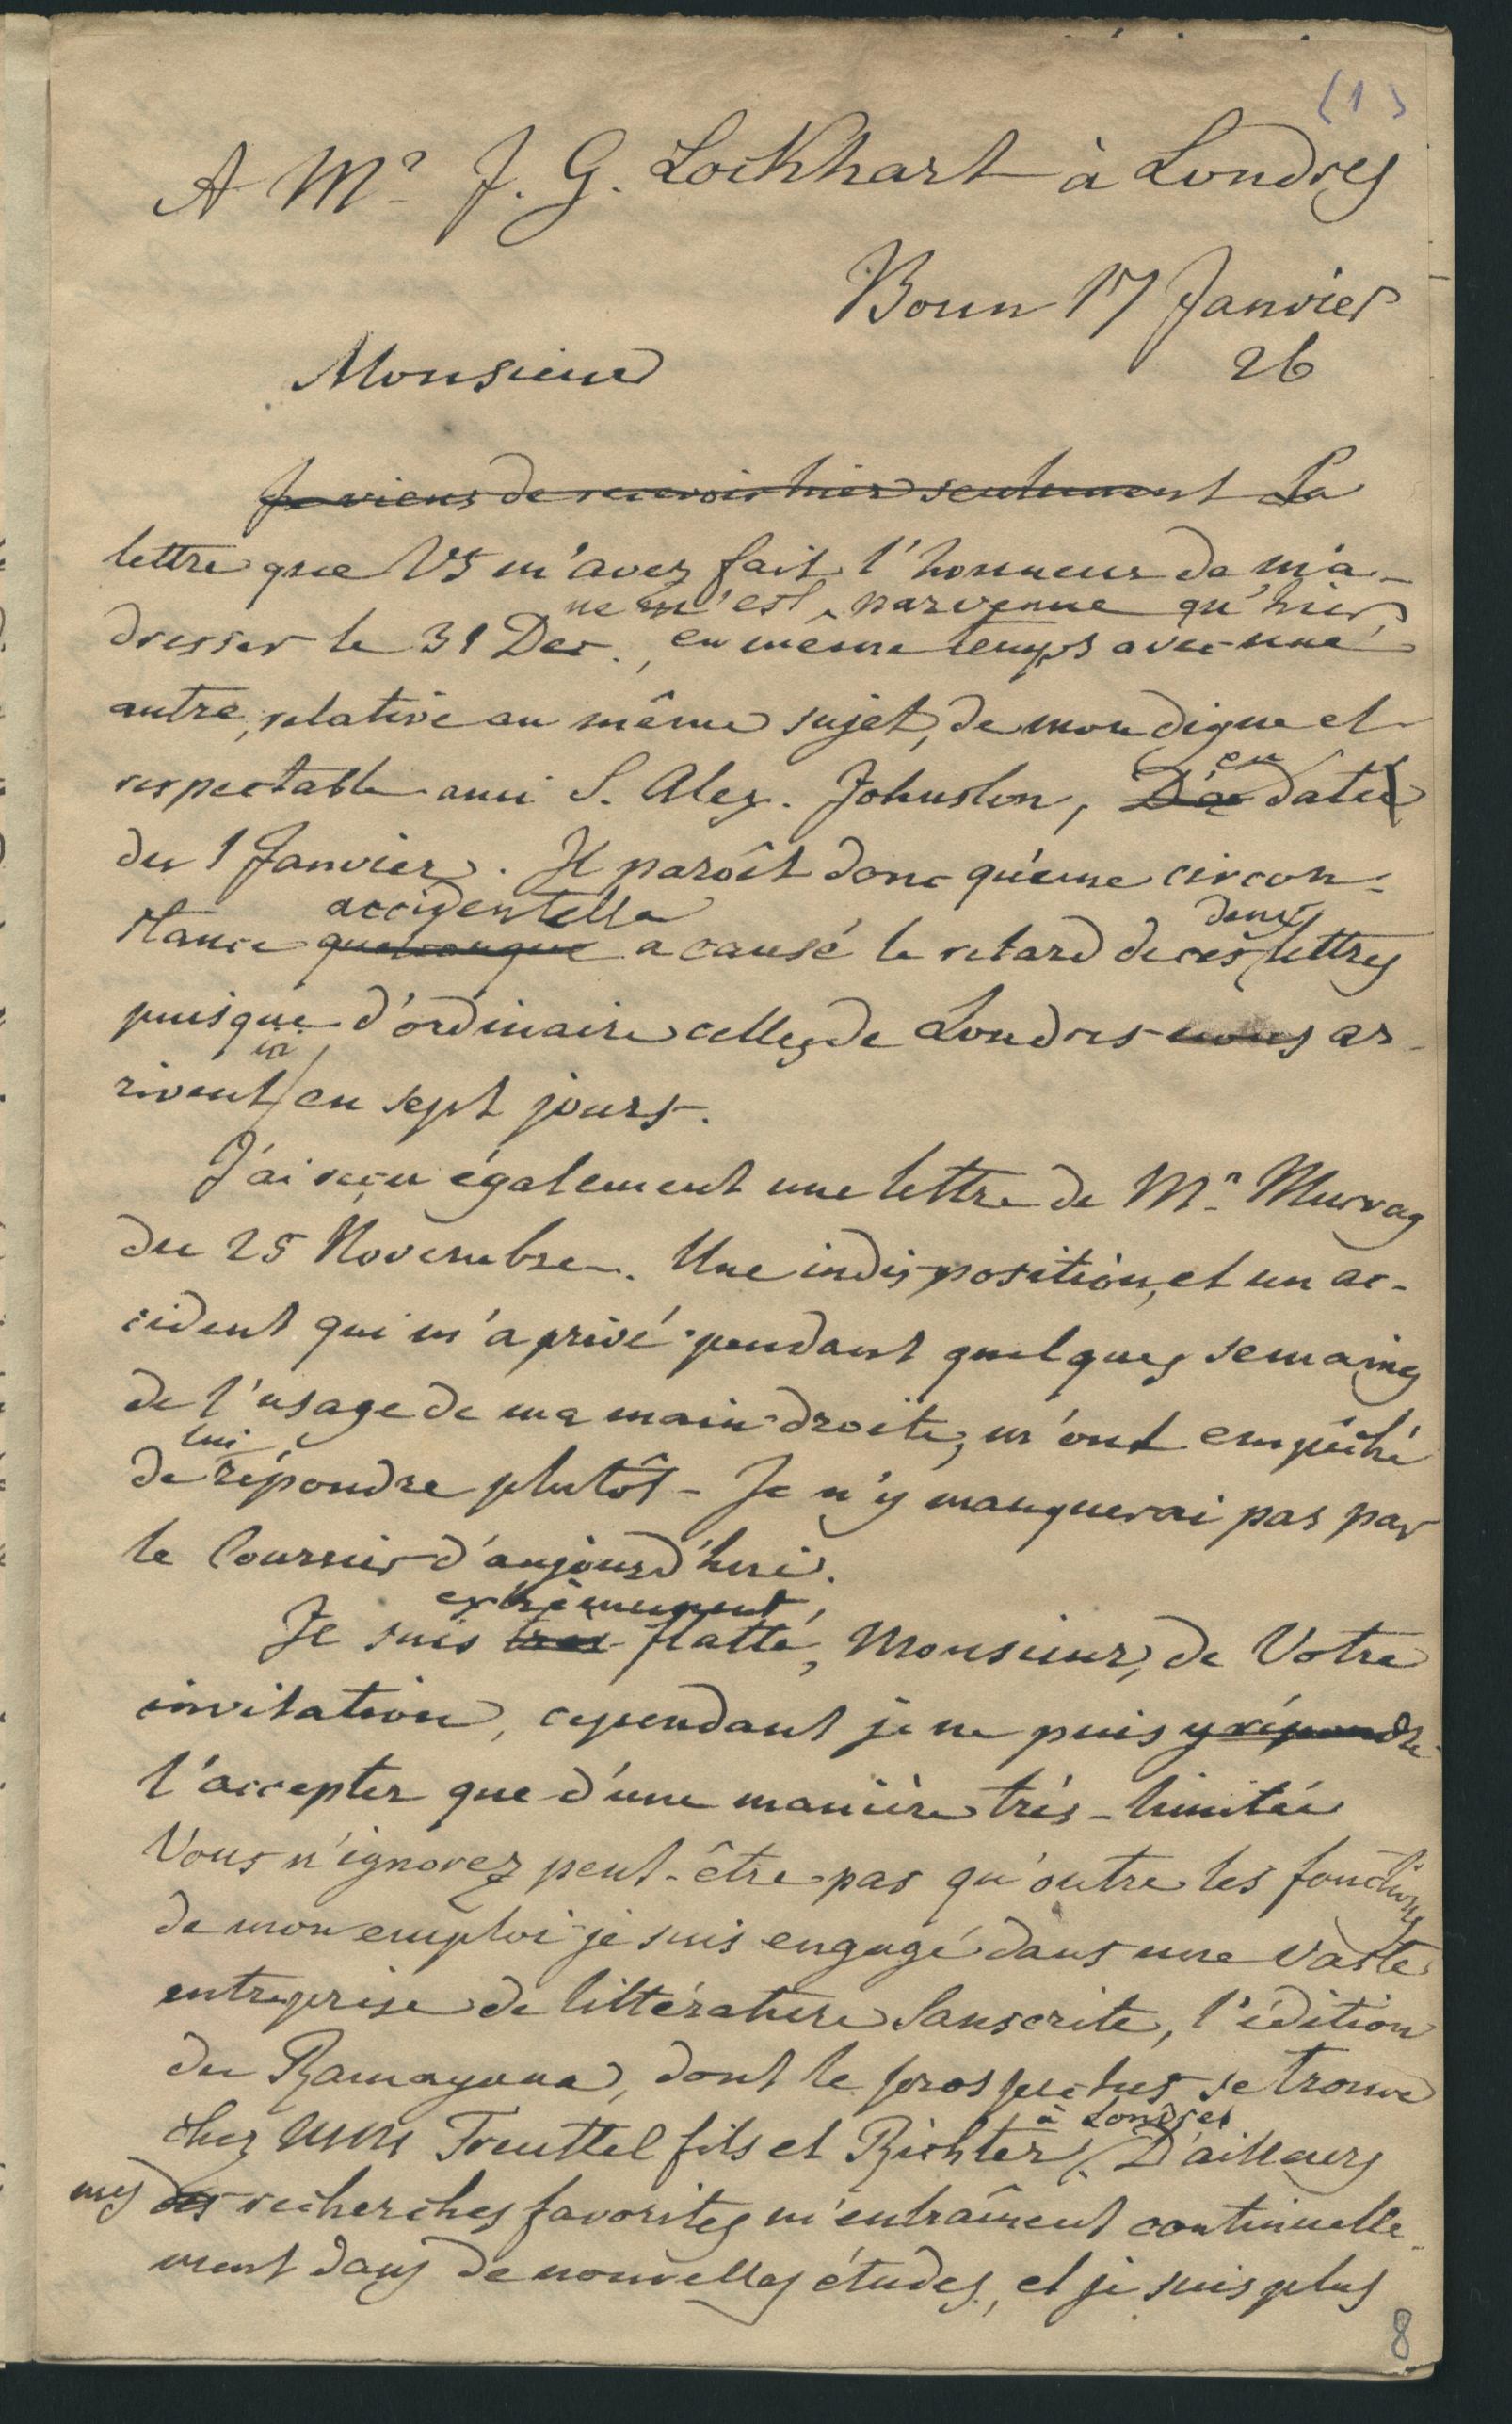 (1)
A Mr J. G. Lockhart à Londres
Bonn 17 Janvier
26
Monsieur
Je viens de recevoir hier seulement La
lettre que Vs m'avez fait l'honneur de m'a-
ne m'est parvenue qu'hier,
dresser le 31 Dec., en même temps avec une
autre, relative au même sujet, de mon digne et
en
respectable ami S. Alex. Johnston, datée
du 1 Janvier. Il paroît donc qu'une circon-
accidentelle deux
stance quelconque a causé le retard de ces lettres
puisque d'ordinaire celles de Londres nous ar-
ici
rivent en sept jours.
J'ai reçu également une lettre de Mr Murray
du 25 Novembre. Une indisposition, et un ac-
cident qui m'a privé pendant quelques semaines
de l'usage de ma main droite, m'ont empêché
lui
de répondre plutôt - Je n'y manquerai pas par
le Courrier d'aujourd'hui.
extrêmement
Je suis tres flatté, Monsieur, de Votre
invitation, cependant je ne puis y répondre
l'accepter que d'une manière très-limitée
Vous n'ignorez peut-être pas qu'outre les fonctions
de mon emploi je suis engagé dans une vaste
entreprise de littérature Sanscrite, l'édition
du Ramayana, dont le prospectus se trouve
à Londres
chez MM Treuttel fils et Richter. D'ailleurs
mes des recherches favorites m'entraînent continuelle-
ment dans de nouvelles études, et je suis plus
8